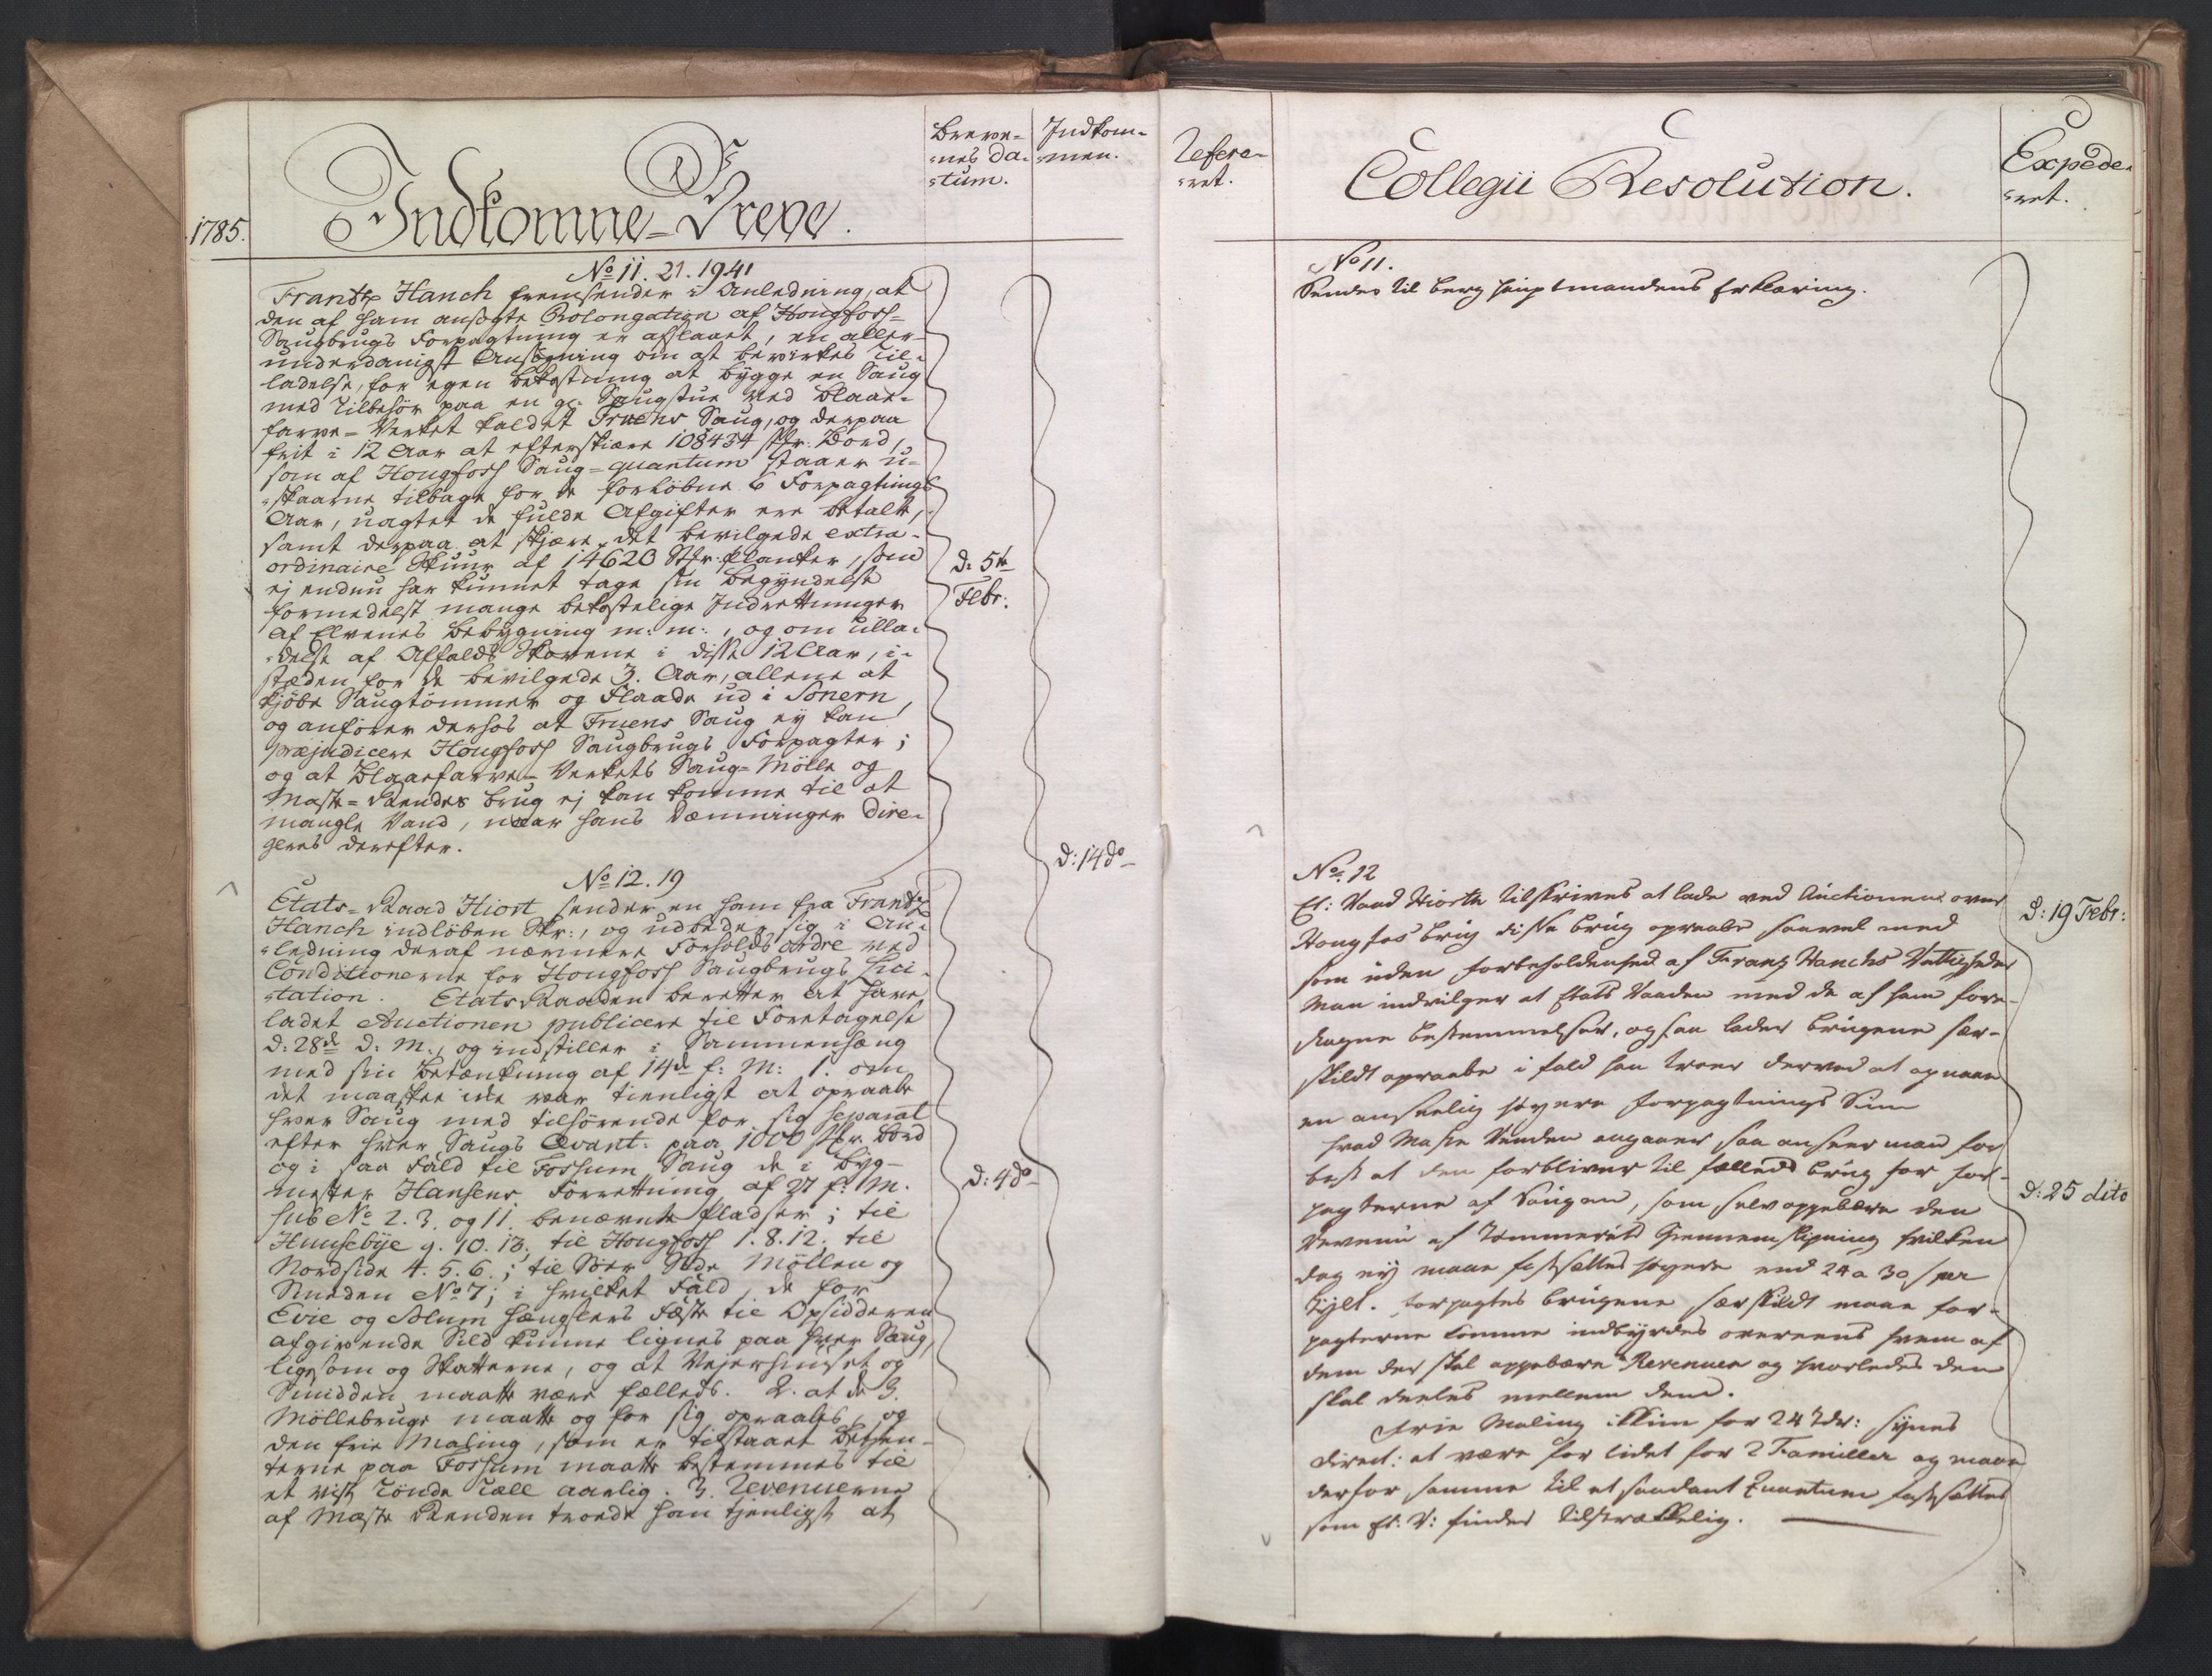 1785.
Indkomne-Breve.
Breve-
-nes Da-
-tum.
Indkom-
-men.
No 11. 21. 1941
Frantz Hanch fremsender i Anledning, at
den af ham ansøgte Prolongation af Hougfoss-
Saugbrugs Forpagtning er afslaaet, en aller-
underdanigst Ansøgning om at bevirkes Til-
ladelse, for egen bekostning at bygge en Saug
med Tilbehør paa en gl: Saugstue ved Blaae-
farve-Verket kaldet Fruens Saug, og derpaa
frit i 12 Aar at efterskiære 108434 stkr: Bord,
som af Hougfoss Saug-quantum staaer u-
-skaarne tilbage for de forløbne 6 Forpagtnings
Aar, uagtet de fulde Afgifter ere betalte,
samt derpaa at skjære det bevilgede extra-
ordinaire Skuur af 14620 Stkr. Planker, som
ej endnu har kunnet tage sin Begyndelse
formedelst mange bekostelige Indretninger
af Elvenes Bebygning m: m:, og om Tilla-
-delse af Affalds Skovene i disse 12 Aar, i-
stæden for de bevilgede 3. Aar, allene at
kjøbe Saugtømmer og Flaade ud i Sonern,
og anfører derhos at Fruens Saug ey kan
præjudicere Hougfoss Saugbrugs Forpagter;
og at Blaaefarve-Verkets Saug-Mølle og
Maste-Rendes brug ej kan komme til at
mangle Vand, naar hans Dæmninger diri-
geres derefter.
d: 5te
Febr:
d: 14 do
No 12. 19
Etats-Raad Hiort sender en ham fra Frantz
Hanch indløben Skr:, og udbeder sig i An-
-ledning deraf nærmere Forholds ordre ved
Conditionerne for Hougfoss Saugbrugs Lici-
-tation. Etats Raaden beretter at have
ladet Auctionen publicere til Foretagelse
d: 28de d: M:, og indstiller i Sammenhæng
med sin Betænkning af 14de f: M: 1. om
det maaskee ikke var tienligst at opraabe
hver Saug med tilhørende for sig separat
efter hver Saugs Qvant: paa 1000 stkr. Bord
og i saa Fald til Fossum Saug de i Byg-
mester Hansens Forretning af 27 f: M.
sub No 2. 3. og 11. benævnte Pladser; til
Huusebye 9. 10. 13; til Hougfoss 1. 8. 12. til
Nordside 4. 5. 6.; til Sver Side Møllen og
Smeden No 7; i hvilket Fald, de for
Evie og Solum Hængsters Fæste til Opsidderen
afgivende Sild kunne lignes paa hver Saug,
ligesom og Skatterne, og at Vejerhuuset og
Smidden maatte være fælleds. 2. at de 3.
Møllebruge maatte og for sig opraabes, og
den frie Maling, som er tilstaaet Betjen-
terne paa Fossum maatte bestemmes til
et vist Tønde Tall aarlig. 3. Revenuerne
af Maste Renden troede han tjenligst at
d: 4 do
Refere-
-ret.
Collegii Resolution.
Expede-
-ret.
No 11.
Sendes til Berg Hauptmandens Erklæring.
No. 12
Et: Raad Hiorth tilskrives at lade ved Auctionen over
Hougfos Brug disse Brug opraabe saavel med
som uden Forbeholdenhed af Frantz Hanchs Rettigheder
Man indvilger at Etats Raaden med de af ham fore-
slagne bestemmelser, ogsaa lader brugene sær-
skildt opraabe i fald han troer derved at opnaae
en anseelig høyere Forpagtnings Sum
Hvad Maste Renden angaaer saa anseer man for
best at den forbliver til fælleds brug for for-
pagterne af Saugene, som selv oppebære den
Revenu af Tommerets Giennemslipning hvilken
dog ey maae fastsættes høyere end 24 a 30 s per
tylt. Forpagtes brugene særskildt maae for-
pagterne komme indbyrdes overeens hvem af
dem der skal oppebære Revenuen og hvorledes den
skal deeles mellem dem.
Frie Maling ikkun for 24 Tdr: synes
Direct: at være for lidet for 2 Familler og maae
derfor samme til et saadant Quantum fastsættes
som Et: R: finder tilstrækkelig.
d: 19 Febr:
d: 25 dito